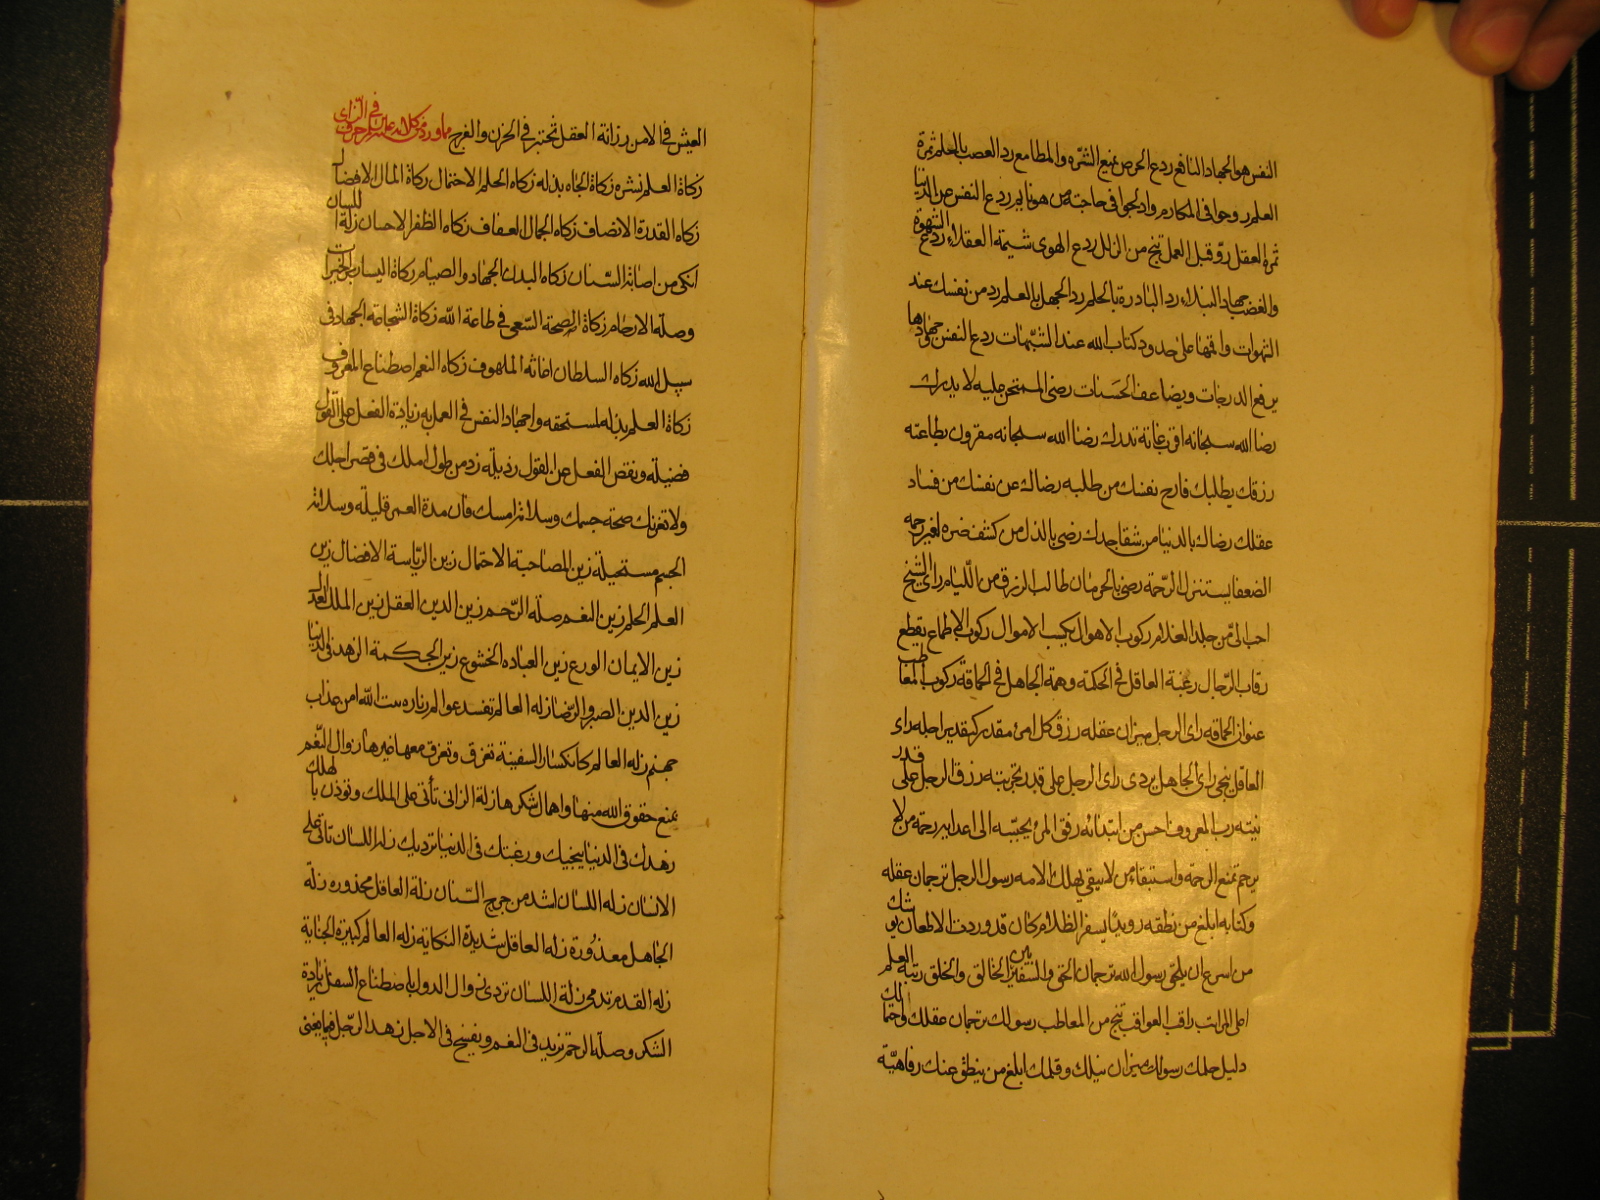 النفس هو الجهاد النافع ردع الحرص يمنع الشره والمطامع رد الغضب بالحلم ثمرة
العلم روحوا في المكارم وادلجوا في حاجة من هو نايم ردع النفس عن الدنيا
ثمرة العقل روّ قبل العمل تنج من الزلل ردع الهوى شيمة العقلاء ردع الشهوة
والغضب جهاد النبلاء رد البادرة بالحلم رد الجهل بالعلم رد من نفسك عند
الشهوات واقمها على حدود كتاب الله عند الشبهات ردع النفس جهادها
يرفع الدرجات ويضاعف الحسنات رضى المتجنى غاية لا يدرك
رضا الله سبحانه اقرب غاية تدرك رضا الله سبحانه مقرون بطاعته
رزقك يطلبك فارح نفسك من طلبه رضاك عن نفسك من فساد
عقلك رضاك بالدنيا من شقا جدك رضى بالذل من كشف ضره لغيره رحمة
الضعفا يستنزل الرحمة رضى بالحرمان طالب الرزق من اللئام راى الشيخ
احب الىّ من جلد الغلام ركوب الاهوال يكسب الاموال ركوب الاطماع يقطع
رقاب الرجال رغبة العاقل في الحكمة وهمة الجاهل في الحماقة ركوب المعاطب
عنوان الحماقه راى الرجل ميزان عقله رزق كل امرئ مقدر كتقدير اجله راى
العاقل ينجى راى الجاهل يردى راى الرجل على قدر تجربته رزق الرجل على قدر
نيته رب المعروف احسن من ابتدائه رفق المرء يحببه الى اعدائه رحمة من لا
يرحم تمنع الرحمة واستبقاء من لا يبقى يهلك الامه رسول الرجل ترجمان عقله
وكتابه ابلغ من نطقه رويدًا يسفر الظلام كان قد وردت الاظعان يوشك
من اسرع ان يلحق رسول الله ترجمان الحق والسفير بين الخالق والخلق رتبة العلم
اعلى المراتب راقب العواقب تنج من المعاطب رسولك ترجمان عقلك واحتمالك
دليل حلمك رسولك ميزان نبلك وقلمك ابلغ من ينطق عنك رفاهيّة
العيش في الامن رزانة العقل تختبر في الحزن والفرح مما ورد من كلامه عليه السلام في حرف الزاى
زكاة العلم نشره زكاة الجاه بذله زكاه الحلم الاحتمال زكاة المال الافضال
زكاه القدرة الانصاف زكاه الجمال العفاف زكاه الظفر الاحسان زلة اللسان
انكى من اصابة السنان زكاه البدن الجهاد والصيام زكاة اليسار بر الجيران
وصلة الارحام زكاة الصحة السعى في طاعة الله زكاة الشجاعة الجهاد في
سبيل الله زكاه السلطان اغاثة الملهوف زكاه النعم اصطناع المعروف
زكاة العلم بذله لمستحقه واجهاد النفس في العمل به زيادة الفعل على القول
فضيلة ونقص الفعل عن القول رذيلة زد من طول املك في قصر اجلك
ولا تغرنك صحة جسمك وسلامة امسك فان مدة العمر قليلة وسلامة
الجسم مستحيلة زين المصاحبة الاحتمال زين الرياسة الافضال زين
العلم الحلم زين النعم صلة الرحم زين الدين العقل زين الملك العدل
زين الايمان الورع زين العباده الخشوع زين الحكمة الزهد في الدنيا
زين الدين الصبر والرضا زلة العالم تفسد عوالم زيارة بيت الله امن من عذاب
جهنم زلة العالم كانكسار السفينة تغرق وتغرق معها غيرها زوال النعم
بمنع حقوق الله منها واهمال شكرها زلة الراى تأتى على الملك وتوذن بالهلك
زهدك في الدنيا ينجيك ورغبتك في الدنيا ترديك زلة اللسان تأتى على
الانسان زلة اللسان اشد من جرح السنان زلة العاقل محذوره زلة
الجاهل معذورة زلة العاقل شديدة النكاية زلة العالم كبيرة الجناية
زلة القدم تدمى زلة اللسان تردى زوال الدول باصطناع السفل زيادة
الشكر وصلة الرحم تزيد في النعم وتفسح في الاجل زهد الرجل فيما يفنى